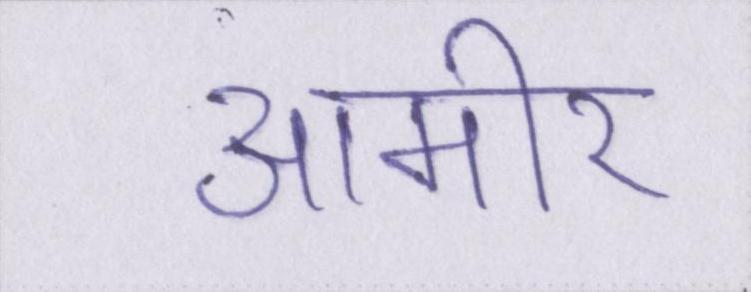 आमीर